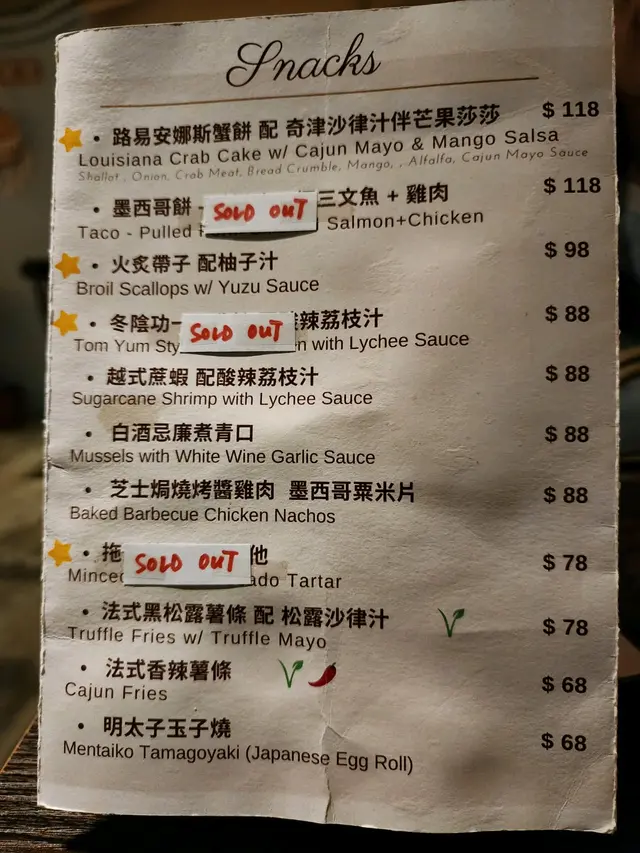 Snacks
• 路易安娜斯蟹餅 配 奇津沙律汁伴芒果莎莎 $ 118
Louisiana Crab Cake w/ Cajun Mayo & Mango Salsa
Shallot , Onion, Crab Meat, Bread Crumble, Mango, , Alfalfa, Cajun Mayo Sauce
• 墨西哥餅 - SOLD OUT 三文魚 + 雞肉 $ 118
Taco - Pulled Salmon+Chicken
• 火炙帶子 配柚子汁 $ 98
Broil Scallops w/ Yuzu Sauce
• 冬陰功 SOLD OUT 辣荔枝汁 $ 88
Tom Yum with Lychee Sauce
• 越式蔗蝦 配酸辣荔枝汁 $ 88
Sugarcane Shrimp with Lychee Sauce
• 白酒忌廉煮青口 $ 88
Mussels with White Wine Garlic Sauce
• 芝士焗燒烤醬雞肉 墨西哥粟米片 $ 88
Baked Barbecue Chicken Nachos
• 拖 SOLD OUT 他 $ 78
Minced Tartar
• 法式黑松露薯條 配 松露沙律汁 $ 78
Truffle Fries w/ Truffle Mayo
• 法式香辣薯條 $ 68
Cajun Fries
• 明太子玉子燒 $ 68
Mentaiko Tamagoyaki (Japanese Egg Roll)